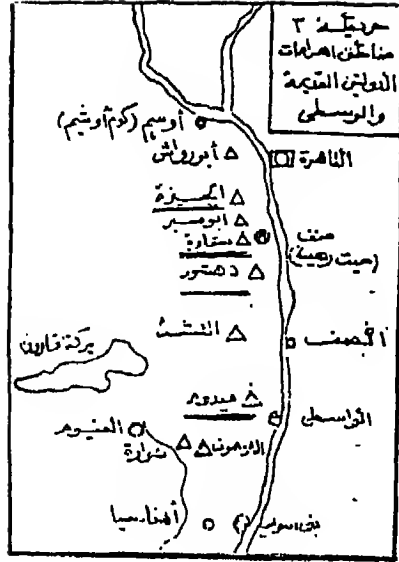 خريطة ٣
مناطق اهرامات
الدولتين القديمة
والوسطى
أوسيم (كوم أوشيم)
أبورواش
القاهرة
الجيزة
ابوصير
سقارة
منف
(ميت رهينة)
دهشور
اللشت
بركة قارون
ميدوم
الواسطى
الفيوم
اللاهون
هوارة
أهناسيا
بنى سويف